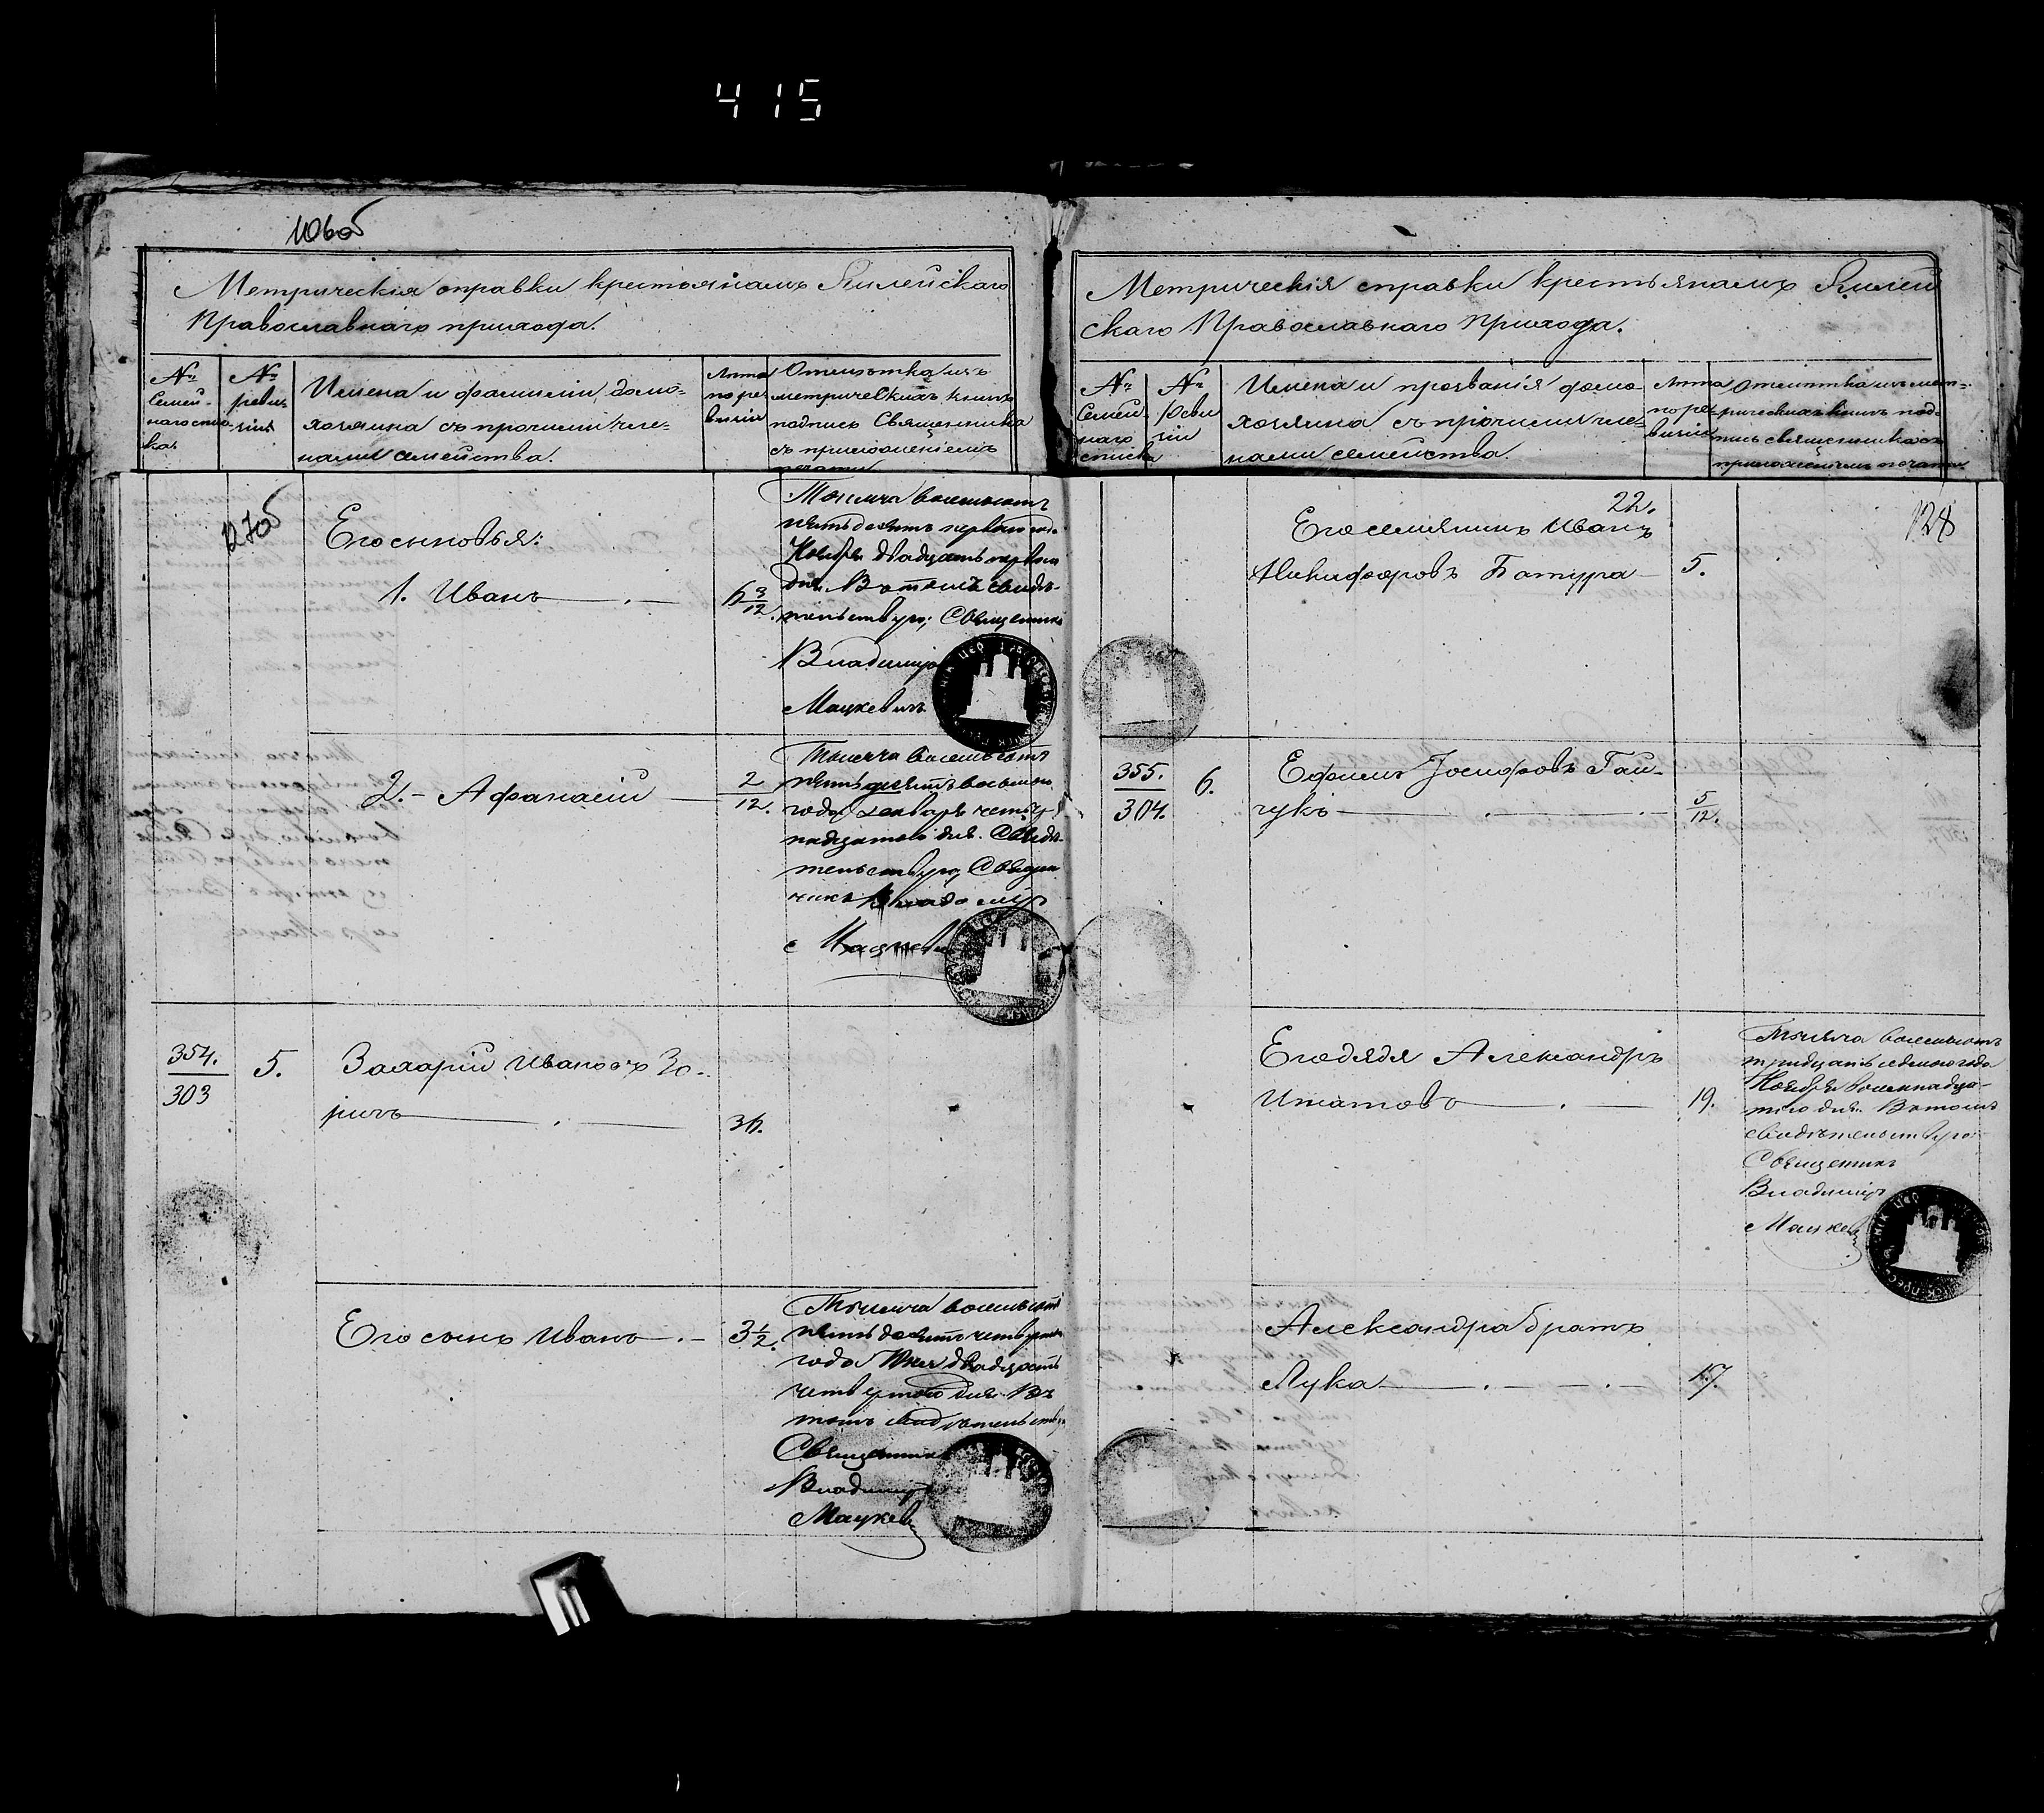 415
110об
Метрическія справки крестьянамъ Килейскаго
Православнаго прихода.
№
Семей-
наго спис-
ка.
№
реви-
зіи
Имена и фамиліи домо-
хозяина съ прочими чле-
нами семейства.
Лѣта
по ре
визіи
Отмѣтка изъ
метрическихъ книгъ
подпись Священника
съ приложеніемъ
печати
127об
Его сыновья:
1. Иванъ
6 3/12.
Тысяча восемьсотъ
пятьдесятъ перваго года
Ноября двадцать перваго
дня. Въ томъ свидѣ-
тельствую; Священникъ
Владиміръ
Мацкевичъ
2. - Афанасій
2/12.
Тысяча восемьсотъ
пятьдесятъ восьмого
года Января четыр
надцатаго дня. Свидѣ-
тельствую Священ
никъ Владиміръ
Мацкевичъ
354.
303
5.
Захарій Ивановъ Зо-
ричъ
36.
Его сынъ Иванъ
3 1/2.
Тысяча восемьсотъ
пятьдесятъ четвертаго
года Юня двадцать
четвертаго дня. Въ
томъ свидѣтельствую
Священникъ
Владиміръ
Мацкевичъ
Метрическія справки крестьянамъ Килей
скаго Православнаго Прихода.
№
Семей
наго
списка
№
Реви
зіи
Имена и прозванія домо
хозяина съ прочими чле-
нами семейства.
Лѣта
по ре
визіи
Отмѣтка изъ мет-
рическихъ книгъ под-
пись священника съ
приложеніемъ печати
128
22.
Его семьянинъ Иванъ
Никифоровъ Батура
5.
355.
304.
6.
Ефимъ Іосифовъ Гай-
чукъ
5/12.
Его дядя Александръ
Игнатовъ
19.
Тысяча восемьсотъ
тридцать седьмого года
Ноября восемнадца-
таго дня. Въ томъ
свидѣтельствую:
Священникъ
Владиміръ
Мацкевичъ
Александра братъ
Лука
17.